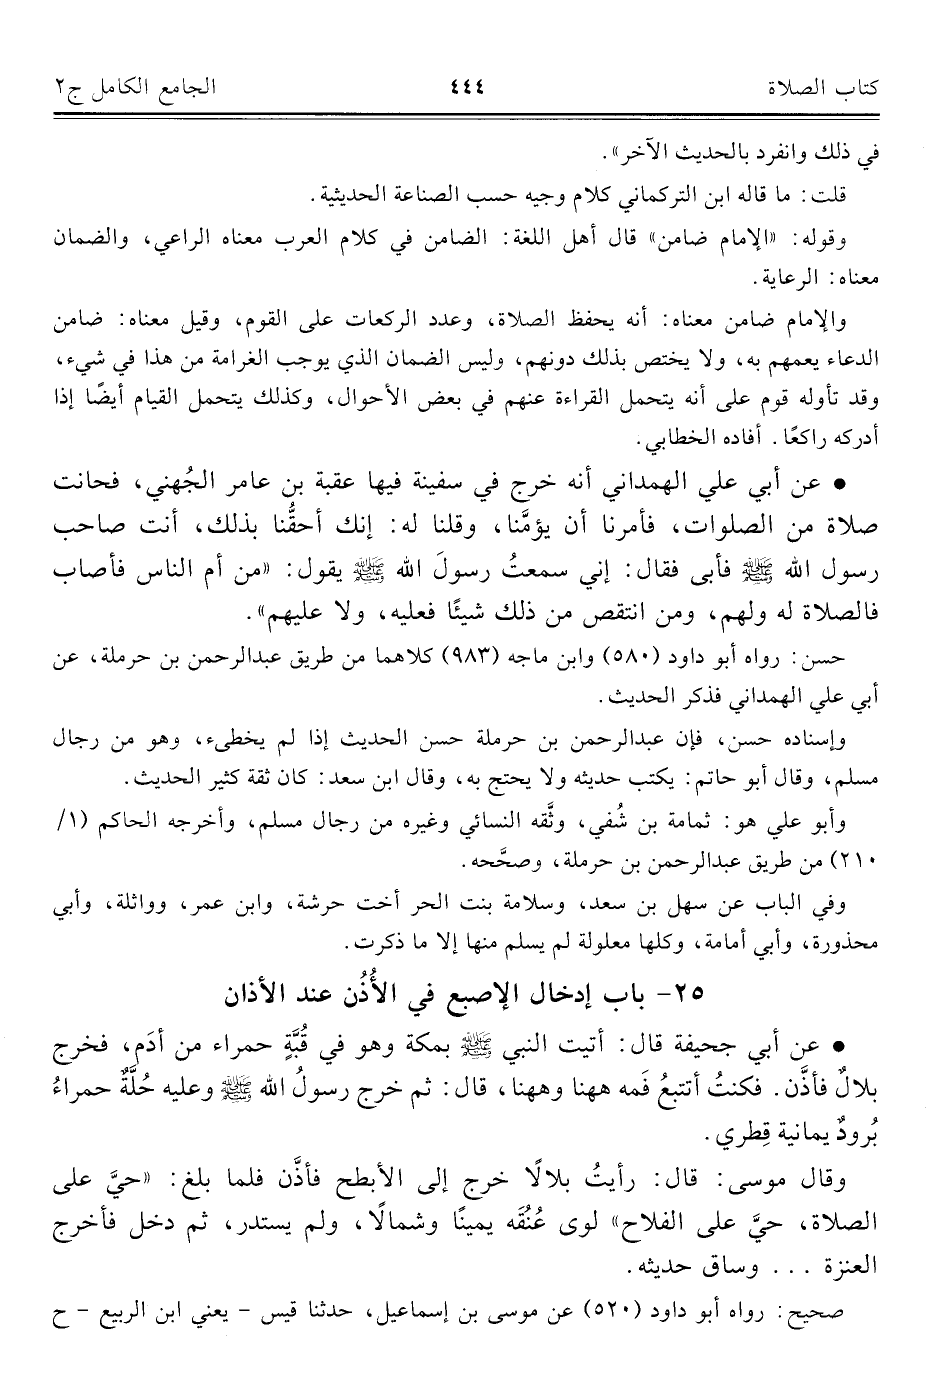 كتاب الصلاة ٤٤٤ الجامع الكامل ج٢
في ذلك وانفرد بالحديث الآخر».
قلت: ما قاله ابن التركماني كلام وجيه حسب الصناعة الحديثية.
وقوله: «الإمام ضامن» قال أهل اللغة: الضامن في كلام العرب معناه الراعي، والضمان
معناه: الرعاية.
والإمام ضامن معناه: أنه يحفظ الصلاة، وعدد الركعات على القوم، وقيل معناه: ضامن
الدعاء يعمهم به، ولا يختص بذلك دونهم، وليس الضمان الذي يوجب الغرامة من هذا في شيء،
وقد تأوله قوم على أنه يتحمل القراءة عنهم في بعض الأحوال، وكذلك يتحمل القيام أيضًا إذا
أدركه راكعًا. أفاده الخطابي.
• عن أبي علي الهمداني أنه خرج في سفينة فيها عقبة بن عامر الجُهني، فحانت
صلاة من الصلوات، فأمرنا أن يؤمَّنا، وقلنا له: إنك أحقُّنا بذلك، أنت صاحب
رسول الله ﷺ فأبى فقال: إني سمعتُ رسولَ الله ﷺ يقول: «من أم الناس فأصاب
فالصلاة له ولهم، ومن انتقص من ذلك شيئًا فعليه، ولا عليهم».
حسن: رواه أبو داود (٥٨٠) وابن ماجه (٩٨٣) كلاهما من طريق عبدالرحمن بن حرملة، عن
أبي علي الهمداني فذكر الحديث.
وإسناده حسن، فإن عبدالرحمن بن حرملة حسن الحديث إذا لم يخطىء، وهو من رجال
مسلم، وقال أبو حاتم: يكتب حديثه ولا يحتج به، وقال ابن سعد: كان ثقة كثير الحديث.
وأبو علي هو: ثمامة بن شُفي، وثَّقه النسائي وغيره من رجال مسلم، وأخرجه الحاكم (١/
٢١٠) من طريق عبدالرحمن بن حرملة، وصحَّحه.
وفي الباب عن سهل بن سعد، وسلامة بنت الحر أخت حرشة، وابن عمر، وواثلة، وأبي
محذورة، وأبي أمامة، وكلها معلولة لم يسلم منها إلا ما ذكرت.
٢٥- باب إدخال الإصبع في الأُذُن عند الأذان
• عن أبي جحيفة قال: أتيت النبي ﷺ بمكة وهو في قُبَّةٍ حمراء من أدَم، فخرج
بلالٌ فأذَّن. فكنتُ أتتبعُ فَمه ههنا وههنا، قال: ثم خرج رسولُ الله ﷺ وعليه حُلَّةٌ حمراءُ
بُرودٌ يمانية قِطري.
وقال موسى: قال: رأيتُ بلالًا خرج إلى الأبطح فأذَّن فلما بلغ: «حيَّ على
الصلاة، حيَّ على الفلاح» لوى عُنُقَه يمينًا وشمالًا، ولم يستدر، ثم دخل فأخرج
العنزة ... وساق حديثه.
صحيح: رواه أبو داود (٥٢٠) عن موسى بن إسماعيل، حدثنا قيس - يعني ابن الربيع - ح